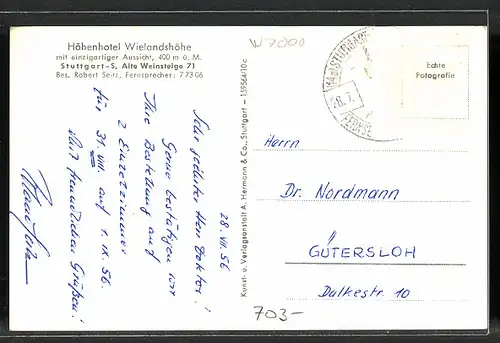 Höhenhotel Wielandshöhe
mit einzigartiger Aussicht, 400 m ü. M.
Stuttgart-S, Alte Weinsteige 71
Bes. Robert Seitz, Fernsprecher: 77306
28. VII. 56
Sehr geehrter Herr Doktor!
Gerne bestätigen wir
Ihre Bestellung auf
2 Einzelzimmer
für 31. VIII. auf 1. IX. 56.
Mit freundlichen Grüßen!
Kunst- u. Verlagsanstalt A. Hermann & Co., Stuttgart - 159564/10c
W7000
STUTTGART
28.7.
Echte
Fotografie
Herrn
Dr. Nordmann
GÜTERSLOH
Dalkestr. 10
703-